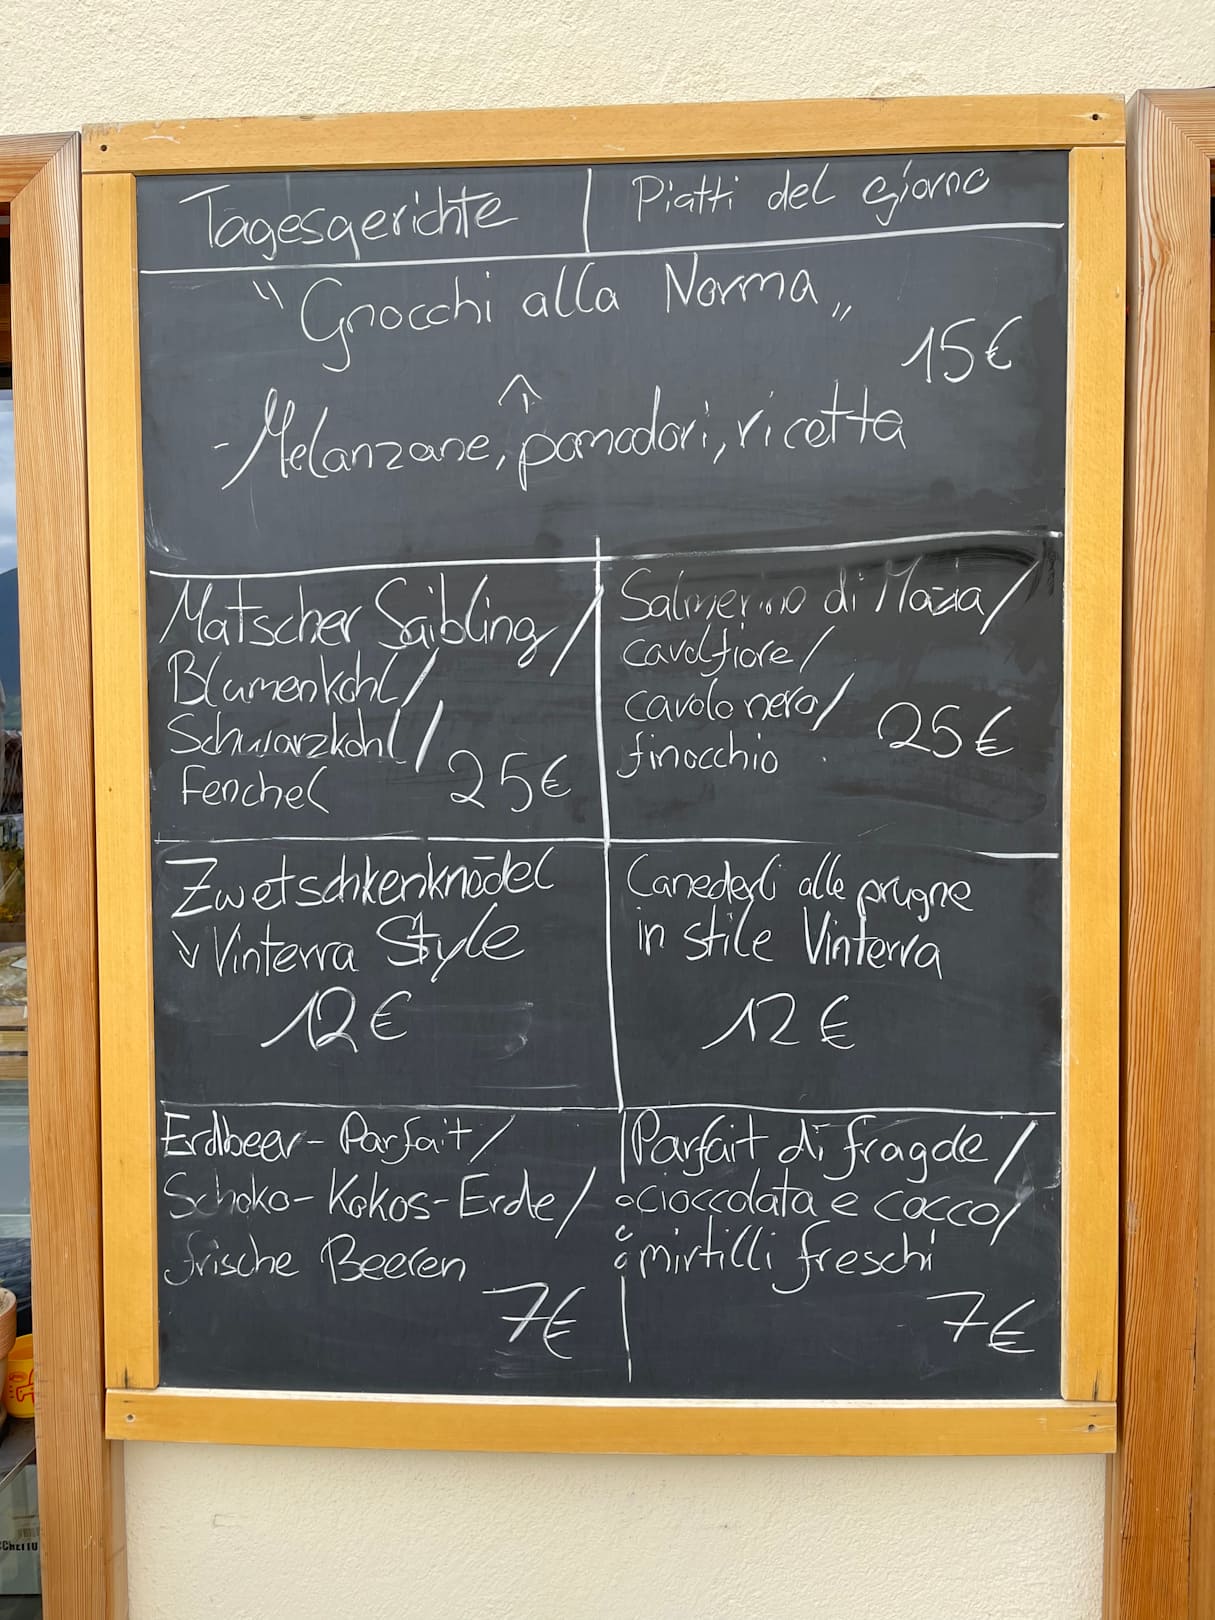 Tagesgerichte | Piatti del giorno
"Gnocchi alla Norma"
15€
^
-Melanzane, pomodori, ricotta
Matscher Saibling/
Blumenkohl/
Schwarzkohl/
Fenchel
25€
Salmerino di Mazia/
cavolfiore/
cavolo nero/
finocchio
25€
Zwetschkenknödel
Vinterra Style
12€
Canederli alle prugne
in stile Vinterra
12€
Erdbeer-Parfait/
Schoko-Kokos-Erde/
frische Beeren
7€
Parfait di fragole/
cioccolata e cocco/
mirtilli freschi
7€